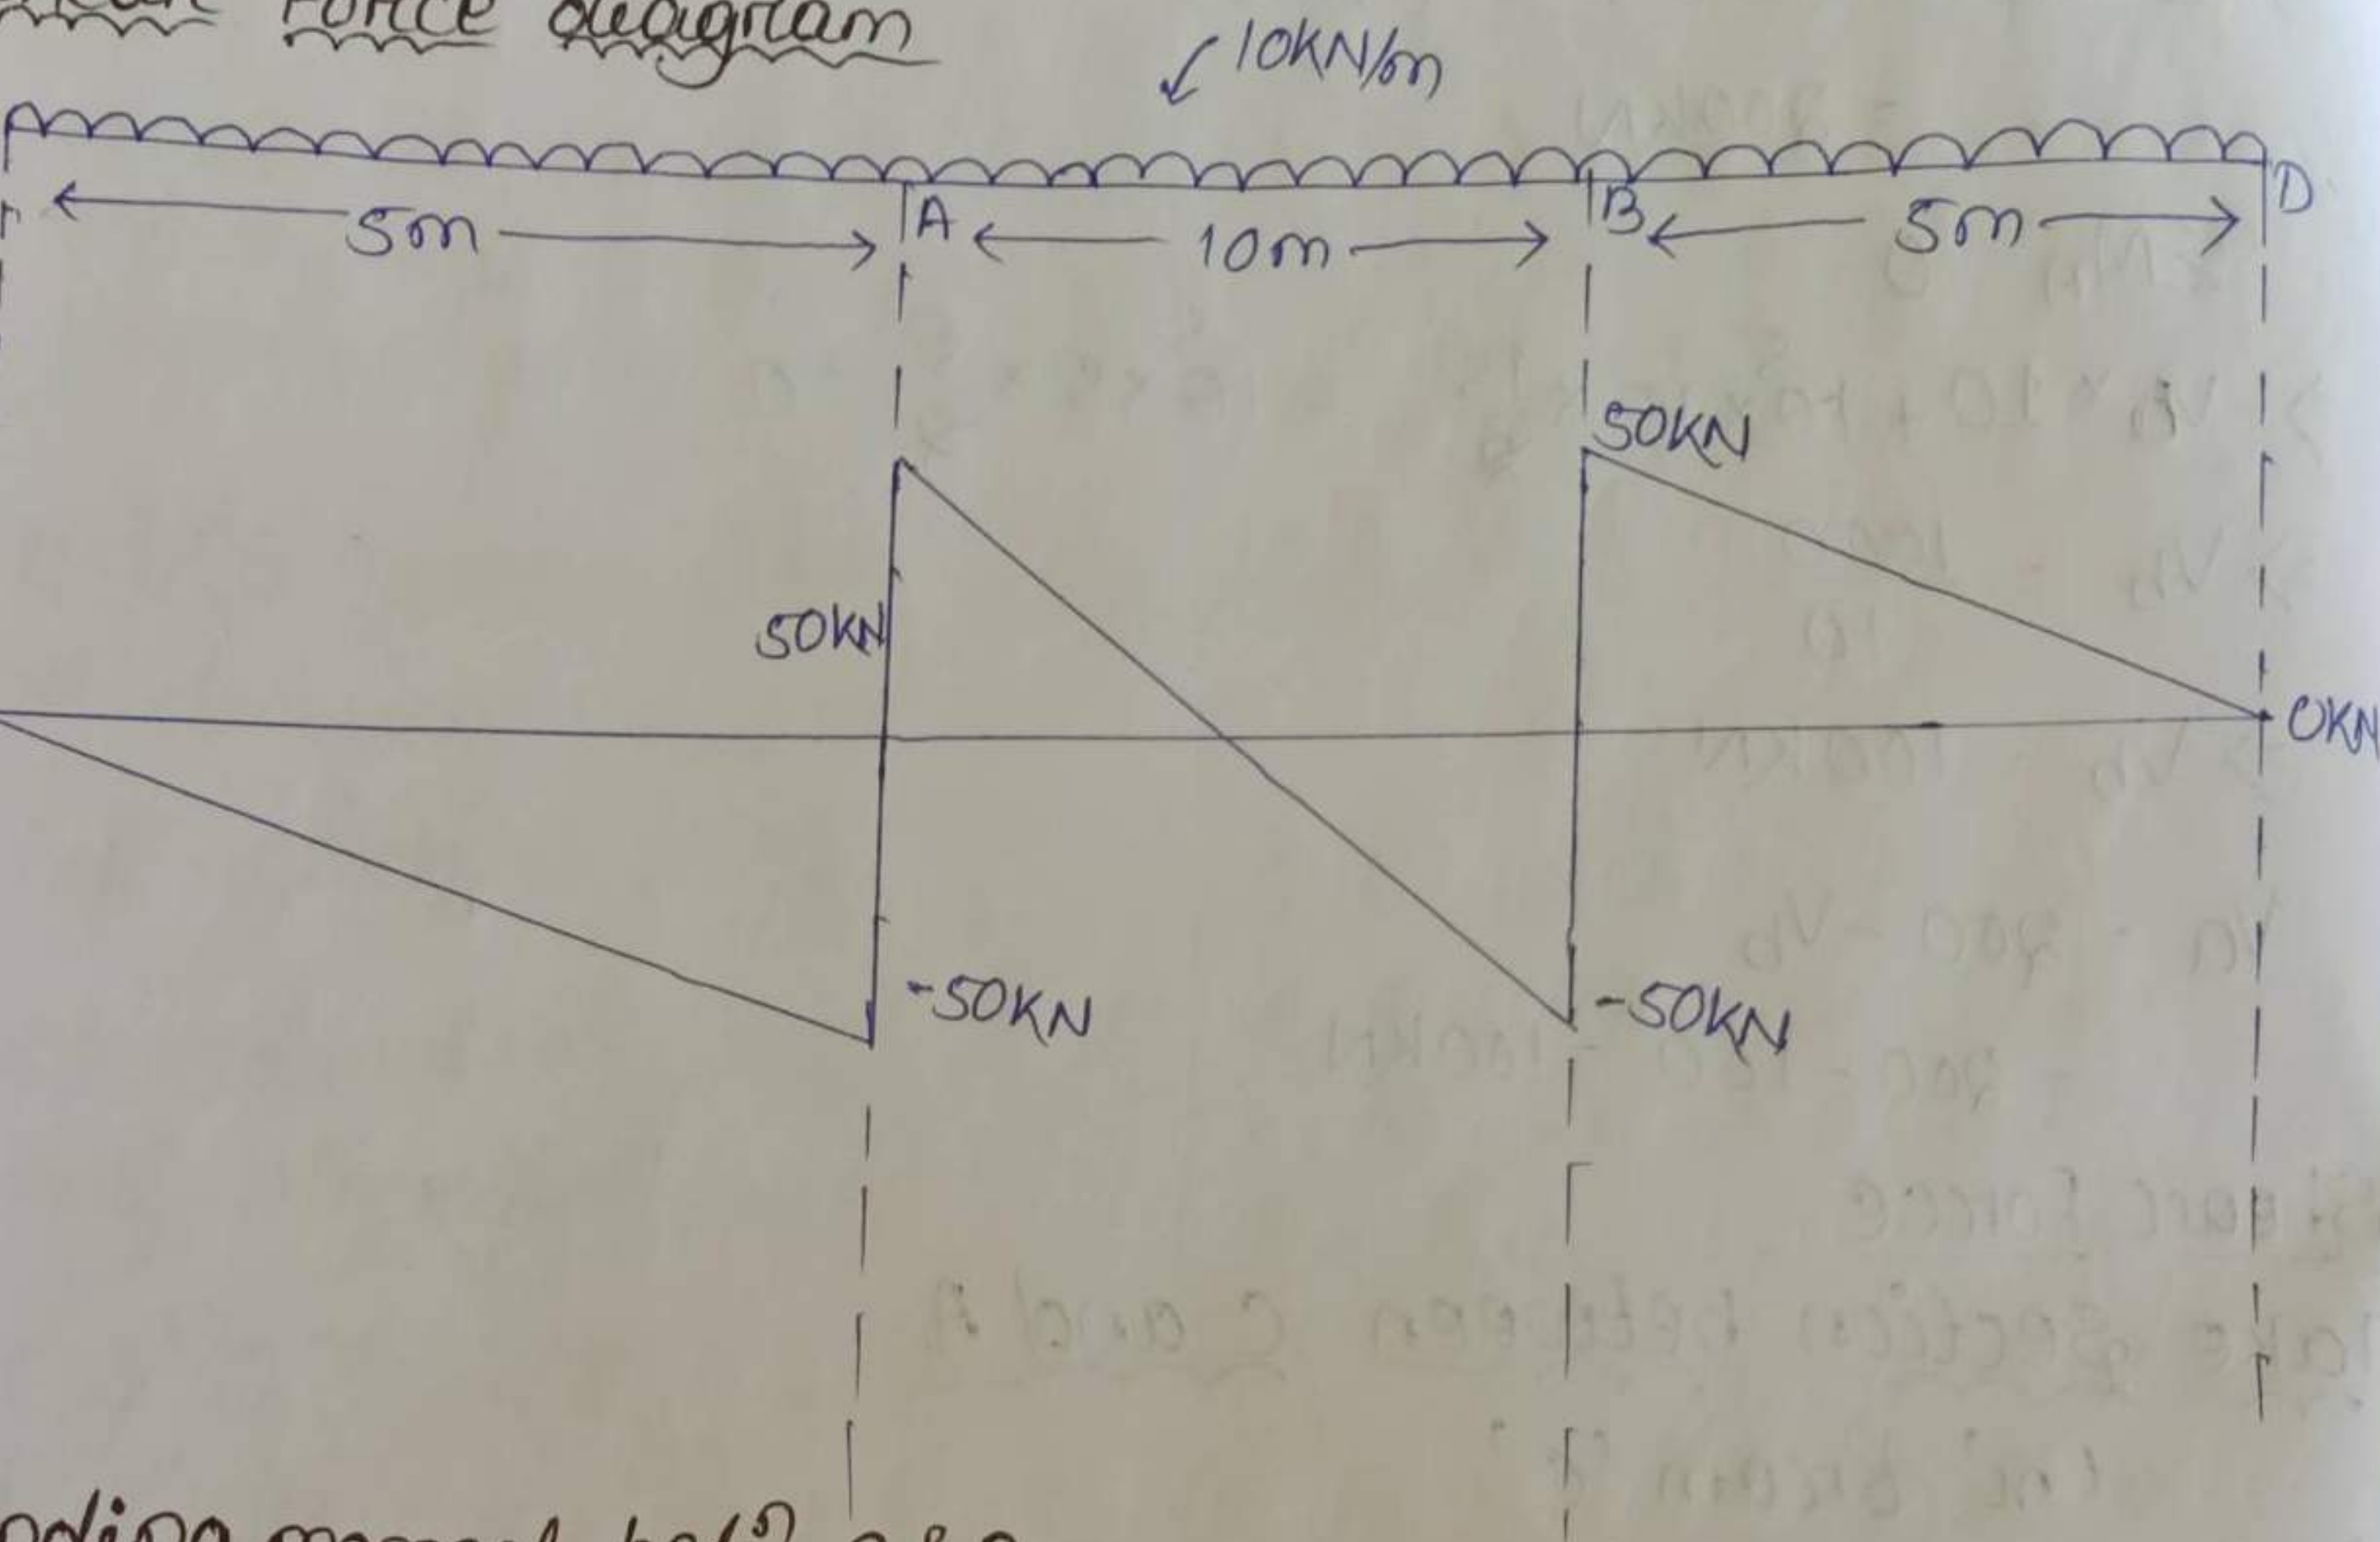 Force diagram
10KN/m
5m A 10m B 5m D
50KN
50KN
0KN
-50KN -50KN